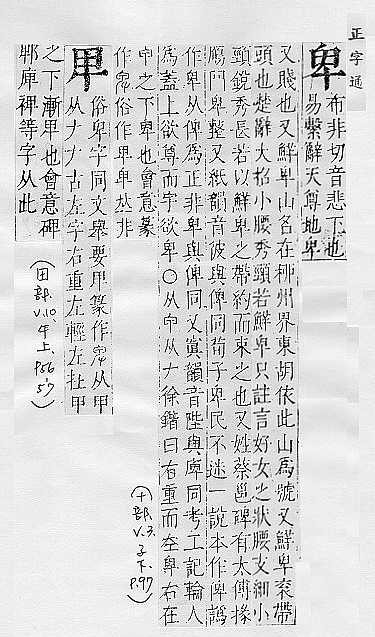 正字通
卑
布非切音悲下也
易繫辭天尊地卑
又賤也又鮮卑山名在柳州界東胡依此山爲號又鮮卑衮帶
頭也楚辭大招小腰秀頸若鮮卑只註言好女之狀腰支細小
頸銳秀長若以鮮卑之帶約而束之也又姓蔡邕碑有太傅掾
鴈門卑整又紙韻音彼與俾同荀子卑民不迷一說本作俾譌
作卑从俾爲正非卑與俾同又寘韻音陛與庳同考工記輪人
爲蓋上欲尊而宇欲卑○从甲从𠂇徐鍇曰右重而左卑右在
甲之下卑也會意篆
作 俗作 𠀤非
(十部. v.3. 子下, p.97)
俗卑字同文舉要 篆作 从甲
从𠂇𠂇古左字右重左輕左在甲
之下漸卑也會意碑
郫庳裨等字从此
(田部. v.10, 午上, p.56 57)